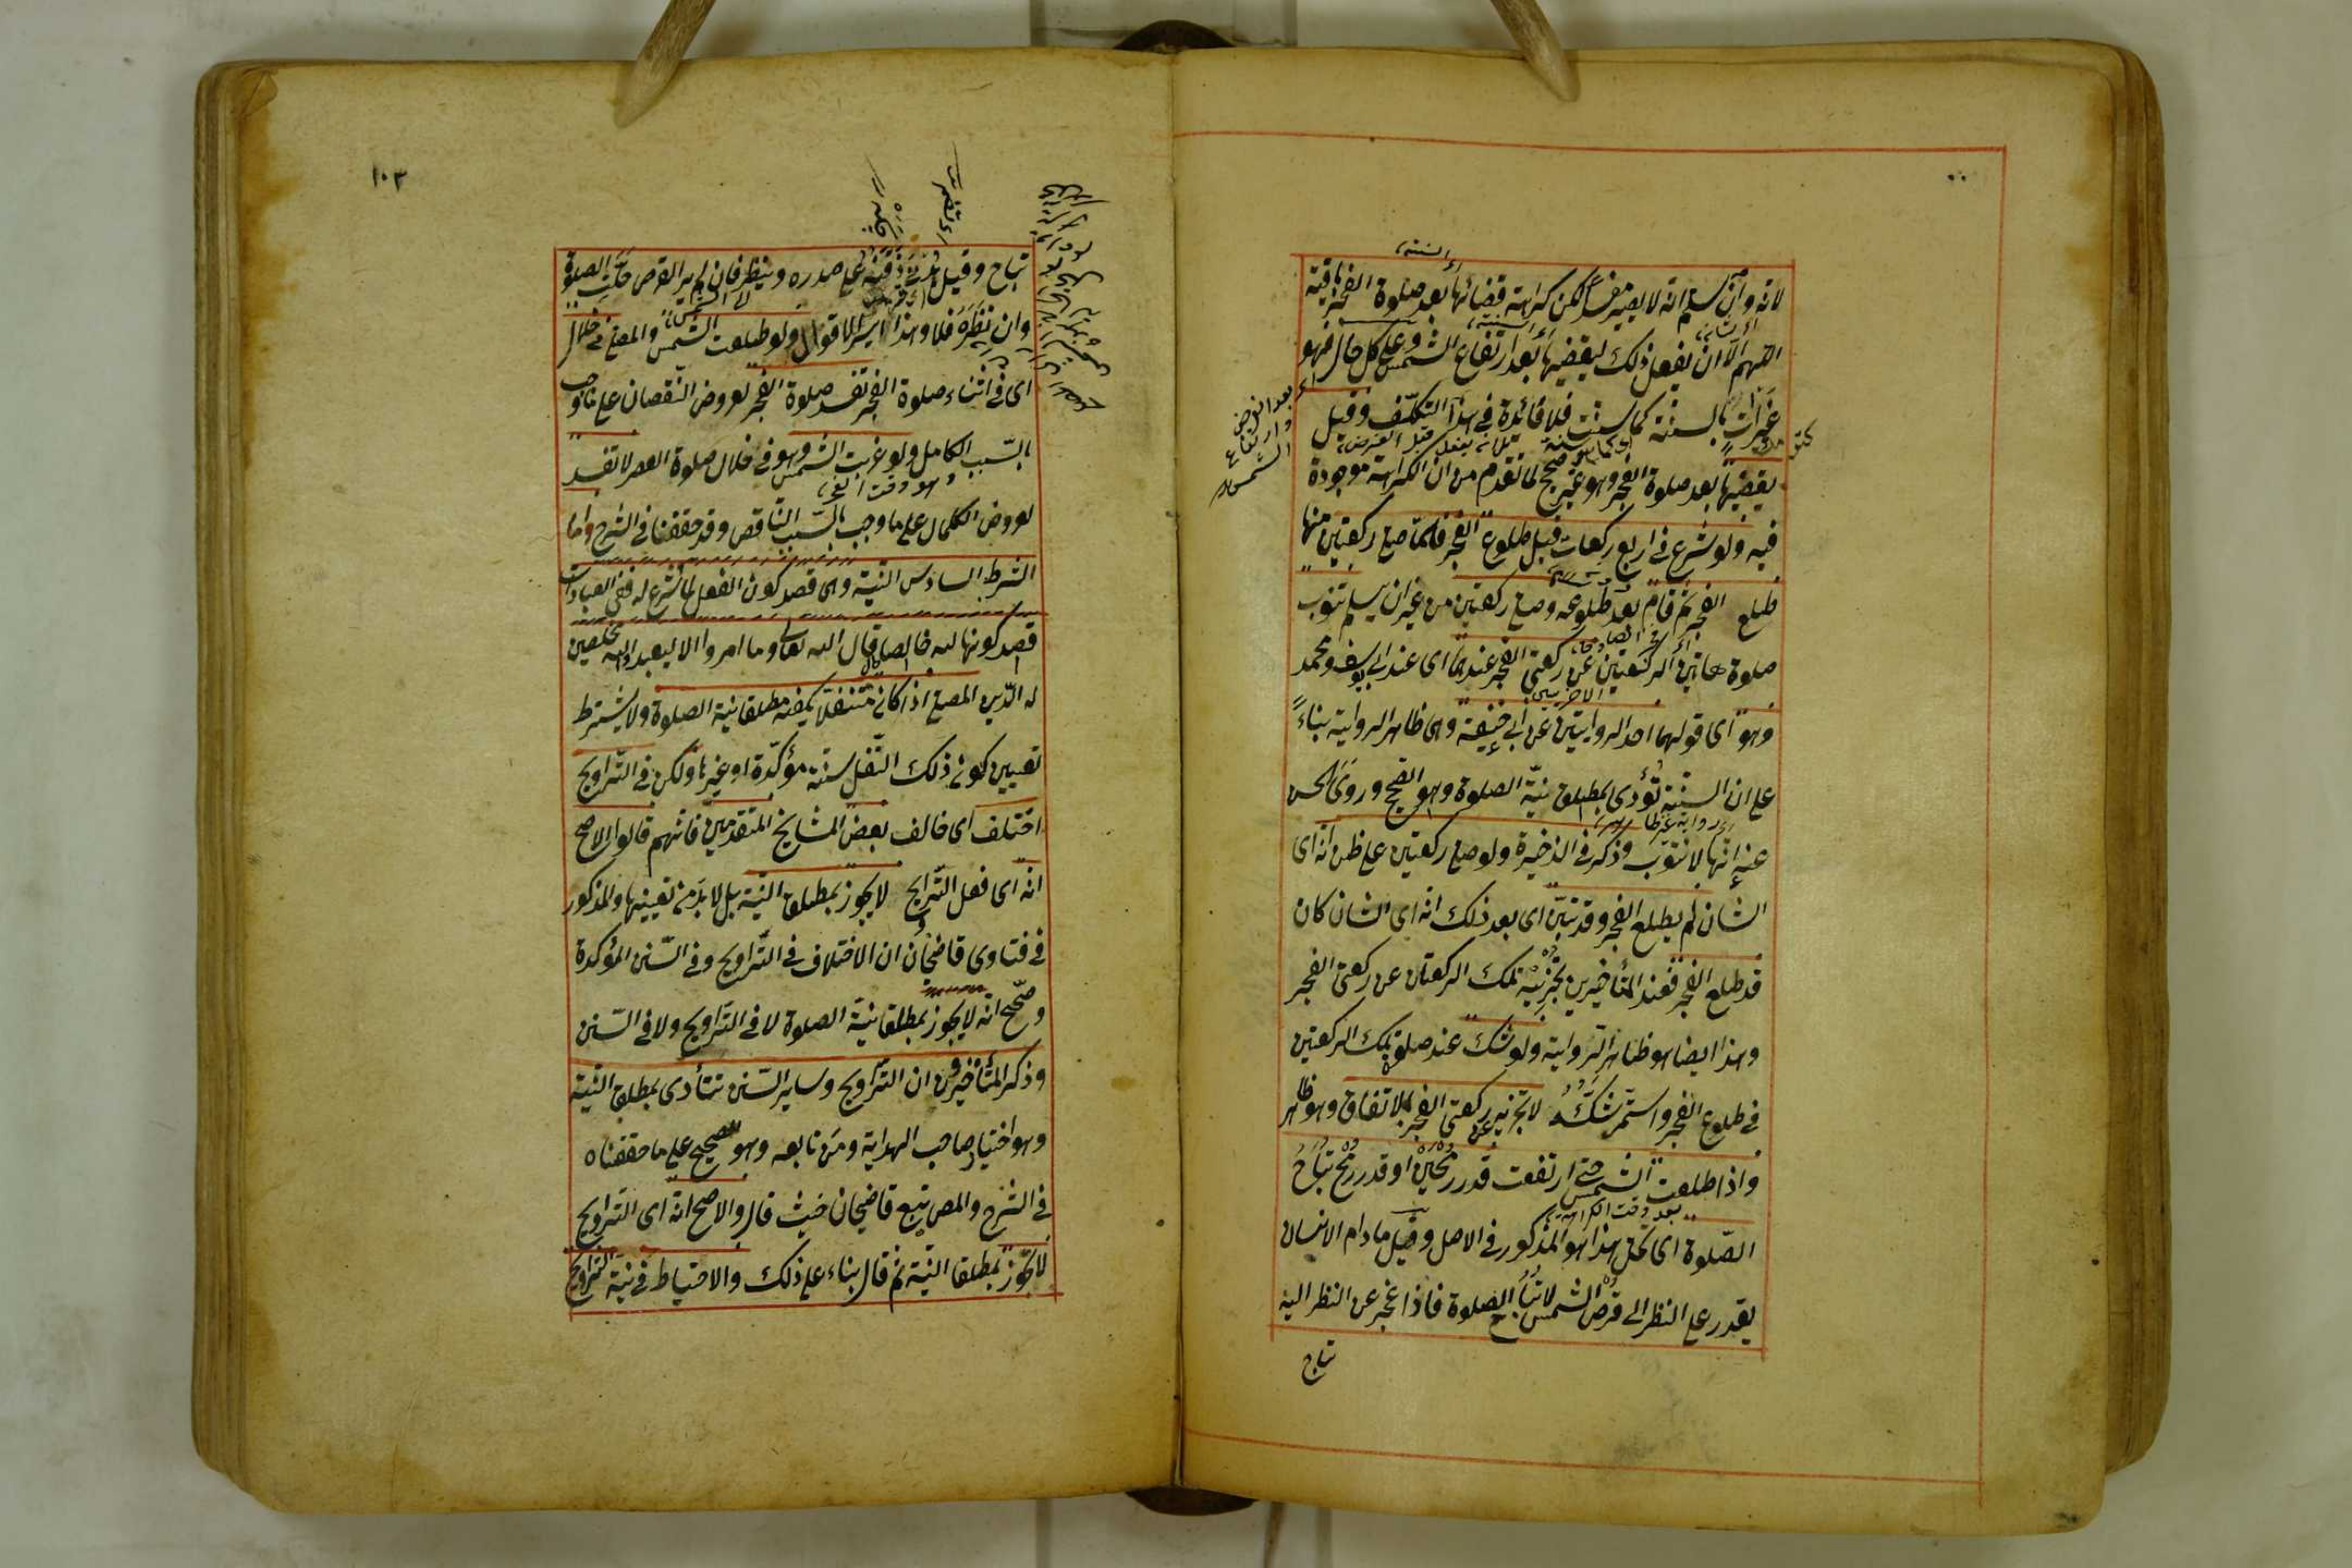 لانه وان سلم انه لا يصير مفسدا لكن كراهة قضائها بعد صلوة الفجر باقية
اللهم الا ان يفعل ذلك ليقضيها بعد ارتفاع الشمس وعلى كل حال فهو
بالسنة كما سنت فلا فائدة في هذا التكلف وقيل
يقضيها بعد صلوة الفجر وهو غير صحيح لما تقدم من ان الكراهة موجودة
فيه ولو شرع في اربع ركعات قبل طلوع الفجر فلما صلى ركعتين منها
طلع الفجر ثم قام بعد طلوعه وصلى ركعتين من غير ان يسلم تنوب
صلوة هاتين الركعتين عن ركعتي الفجر عندهما اى عند ابى يوسف ومحمد
وهو اى قولهما احد الروايتين عن ابي حنيفة وهى ظاهر الرواية بناءً
على ان السنة تؤدى بمطلق نية الصلوة وهو الصحيح وروى الحسن
عنه انها لا تنوب وذكر في الذخيرة ولو صلى ركعتين على ظن انه اى
الشان لم يطلع الفجر وقد تبين اى بعد ذلك انه اى الشان كان
قد طلع الفجر فعند المتأخرين يجزئيه تلك الركعتان عن ركعتى الفجر
وهذا ايضا هو ظاهر الرواية ولو شك عند صلوة تلك الركعتين
في طلوع الفجر واستمر شكه لا تجزيه عن ركعتى الفجر بالاتفاق وهو ظاهر
واذا طلعت الشمس حتى ارتفعت قدر رمحين او قدر رمح تباح
الصلوة اى تحل هذا هو المذكور في الاصل وقيل ما دام الانسان
يقدر على النظر الى قرص الشمس لا تباح الصلوة فاذا عجز عن النظر اليه
تباح
بعد
وارتفاع
الشمس
١٠٣
تباح وقيل ذقنه على صدره وينظر فان لم ير القرص حلت الصلوة
وان نظره فلا وهذا ايسر الاقوال ولو طلعت الشمس والمصلى في خلال
اى في اثناء صلوة الفجر تفسد صلوة الفجر لعروض النقصان على ما وجب
بالسبب الكامل ولو غربت الشمس وهو في خلال صلوة العصر لا تفسد
لعروض الكمال على ما وجب بالسبب الناقص وقد حققنا في الشرح واما
الشرط السادس النية وهى قصد كون الفعل لما شرع له ففى العبادات
قصد كونها لله خالصا قال الله تعالى وما امروا الا ليعبدوا الله مخلصين
له الدين المصلى اذا كان متنفلا يكفيه مطلقا نية الصلوة ولا يشترط
تعيين كون ذلك النفل سنة مؤكدة او غيرها ولكن في التراويح
اختلف اى خالف بعض المشايخ المتقدمين فانهم قالوا الاصح
انه اى فعل التراويح لا يجوز بمطلق النية بل لا بد من تعيينها والمذكور
في فتاوى قاضيخان ان الاختلاف في التراويح وفى السنن المؤكدة
وصحح انه لا يجوز بمطلقا نية الصلوة لا في التراويح ولا في السنن
وذكر المتأخرون ان التراويح وساير السنن تتأدى بمطلق النية
وهو اختيار صاحب الهداية ومن تابعه وهو الصحيح على ما حققناه
في الشرح والمص يتبع قاضيخان حيث قال والاصح انه اى التراويح
لا يجوز بمطلقا النية ثم قال بناء على ذلك والاحتياط في نية التراويح